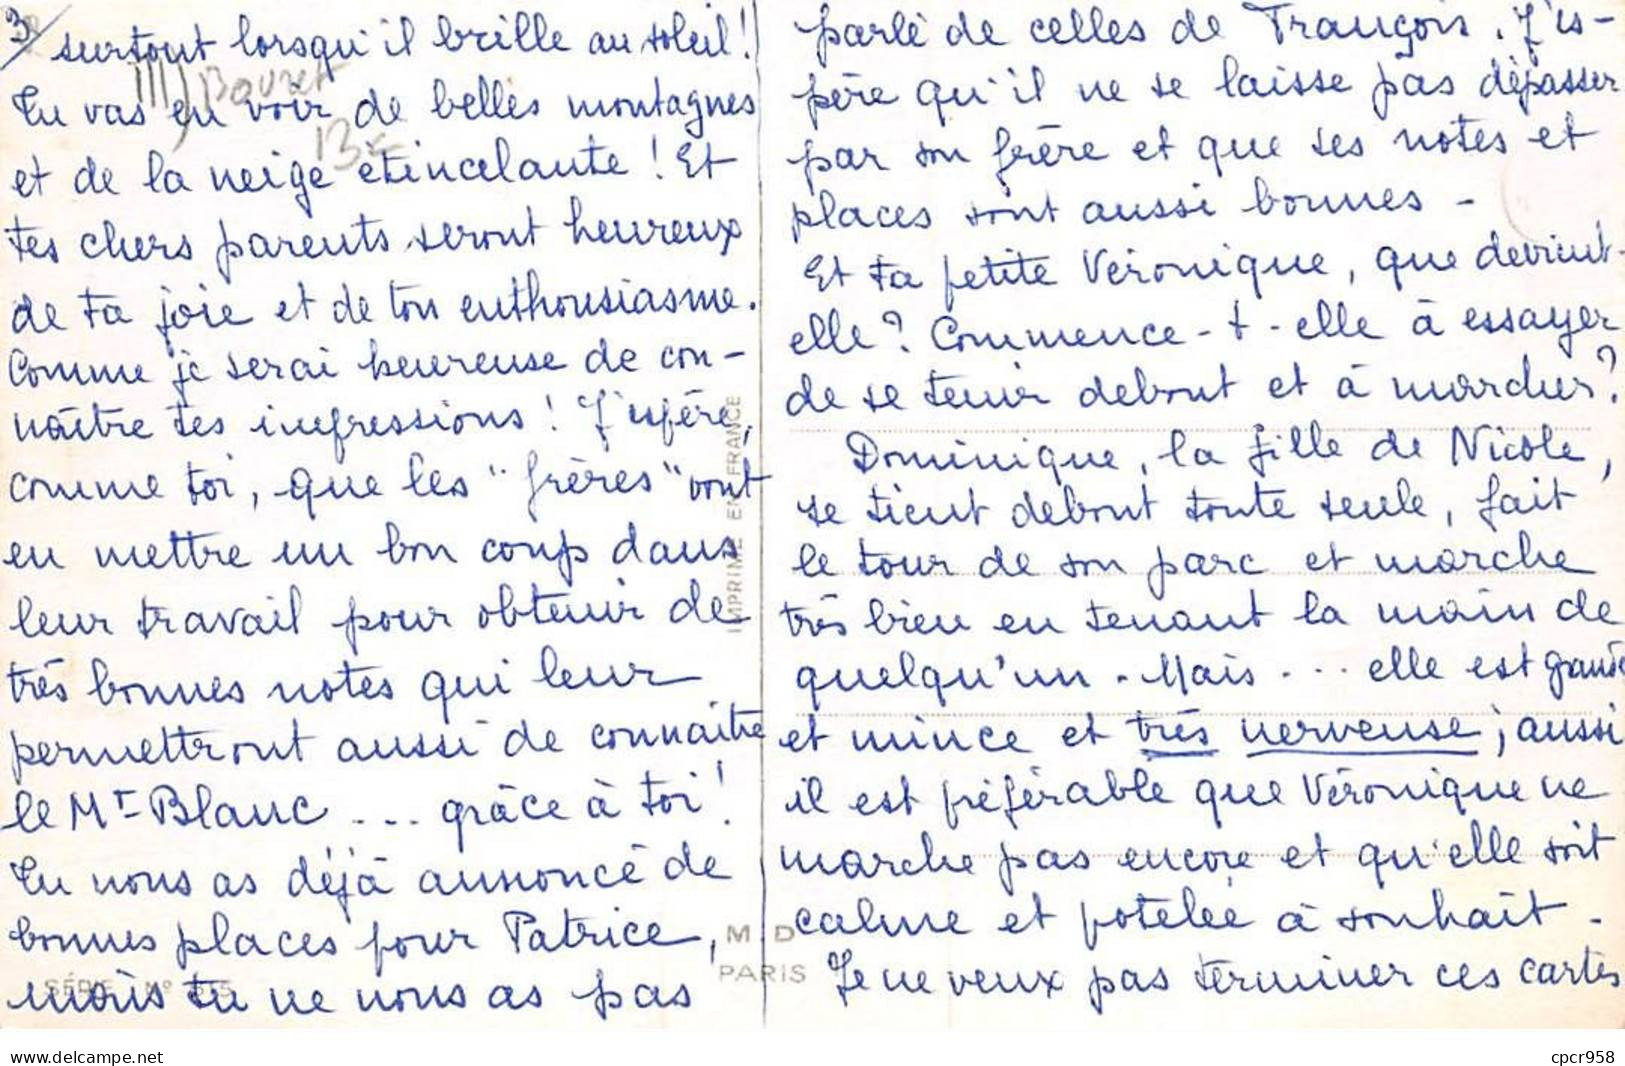 3/ surtout lorsqu'il brille au soleil!
III) Bouret
Tu vas en voir de belles montagnes
13 €
et de la neige étincelante ! Et
tes chers parents seront heureux
de ta joie et de ton enthousiasme.
Comme je serai heureuse de con-
naître tes impressions ! J'espère,
comme toi, que les "frères" vont
en mettre un bon coup dans
leur travail pour obtenir de
très bonnes notes qui leur
permettront aussi de connaître
le Mt Blanc ... grâce à toi !
Tu nous as déjà annoncé de
bonnes places pour Patrice,
mais tu ne nous as pas
SÉRIE N°
IMPRIMÉ EN FRANCE
M D
PARIS
parlé de celles de François. J'es-
père qu'il ne se laisse pas dépasser
par son frère et que ses notes et
places sont aussi bonnes -
Et ta petite Véronique, que devient-
elle ? Commence-t-elle à essayer
de se tenir debout et à marcher ?
Dominique, la fille de Nicole,
se tient debout toute seule, fait
le tour de son parc et marche
très bien en tenant la main de
quelqu'un - Mais ... elle est grande
et mince et très nerveuse ; aussi
il est préférable que Véronique ne
marche pas encore et qu'elle soit
calme et potelée à souhait -
Je ne veux pas terminer ces cartes
www.delcampe.net
cpcr958